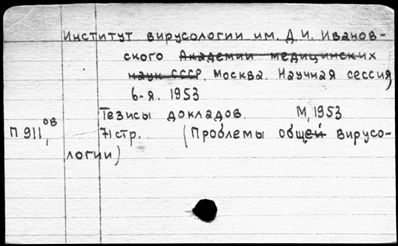 Институт вирусологии им. Д. И. Иванов-
ского Академии медицинских
наук СССР. Москва. Научная сессия
6-я. 1953
Тезисы докладов. М, 1953
П 911, 08 71 стр. (Проблемы общей вирусо-
логии)